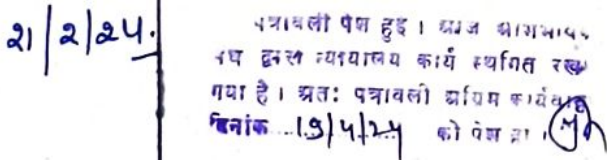 21/2/24.
पत्रावली पेश हुई । आज
संघ द्वारा न्यायालय कार्य स्थगित रखा
गया है । अतः पत्रावली अग्रिम कार्यवाही
दिनांक ..19/4/24 को पेश हो ।